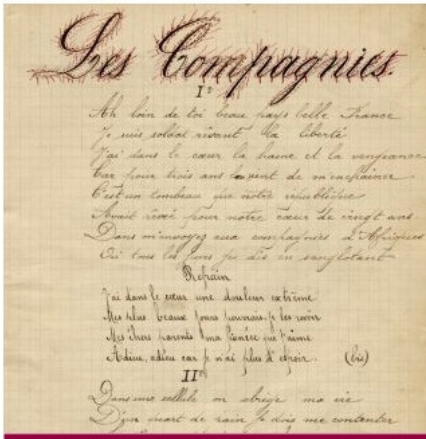 Les Compagnies.
I°
Ah loin de toi beau pays belle France
Je suis soldat rêvant la liberté
J'ai dans le cœur la haine et la vengeance
Car pour trois ans de m'enchainer
C'est un tombeau que notre république
Avait rêvé pour notre cœur de vingt ans
Dans m'envoyez aux compagnies d'Afriques
Où tous les jours je dis en sanglotant
Refrain
J'ai dans le cœur une douleur extrême
Mes plus beaux jours pourrais-je les revoir
Mes chers parents ma fiancée que j'aime
Adieu, adieu car je n'ai plus d'espoir. (bis)
II°
Dans une cellule on abrège ma vie
D'un quart de pain je dois me contenter